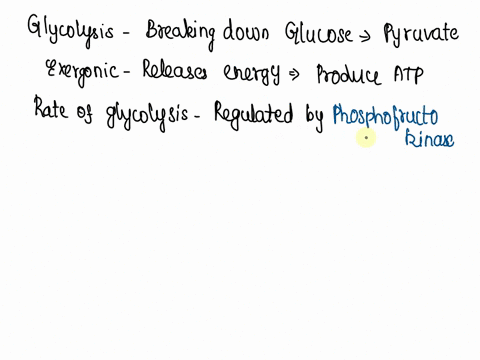 Glycolysis - Breaking down Glucose → Pyruvate
Exergonic - Releases energy ⇒ Produce ATP
Rate of glycolysis - Regulated by Phosphofructo
kinase